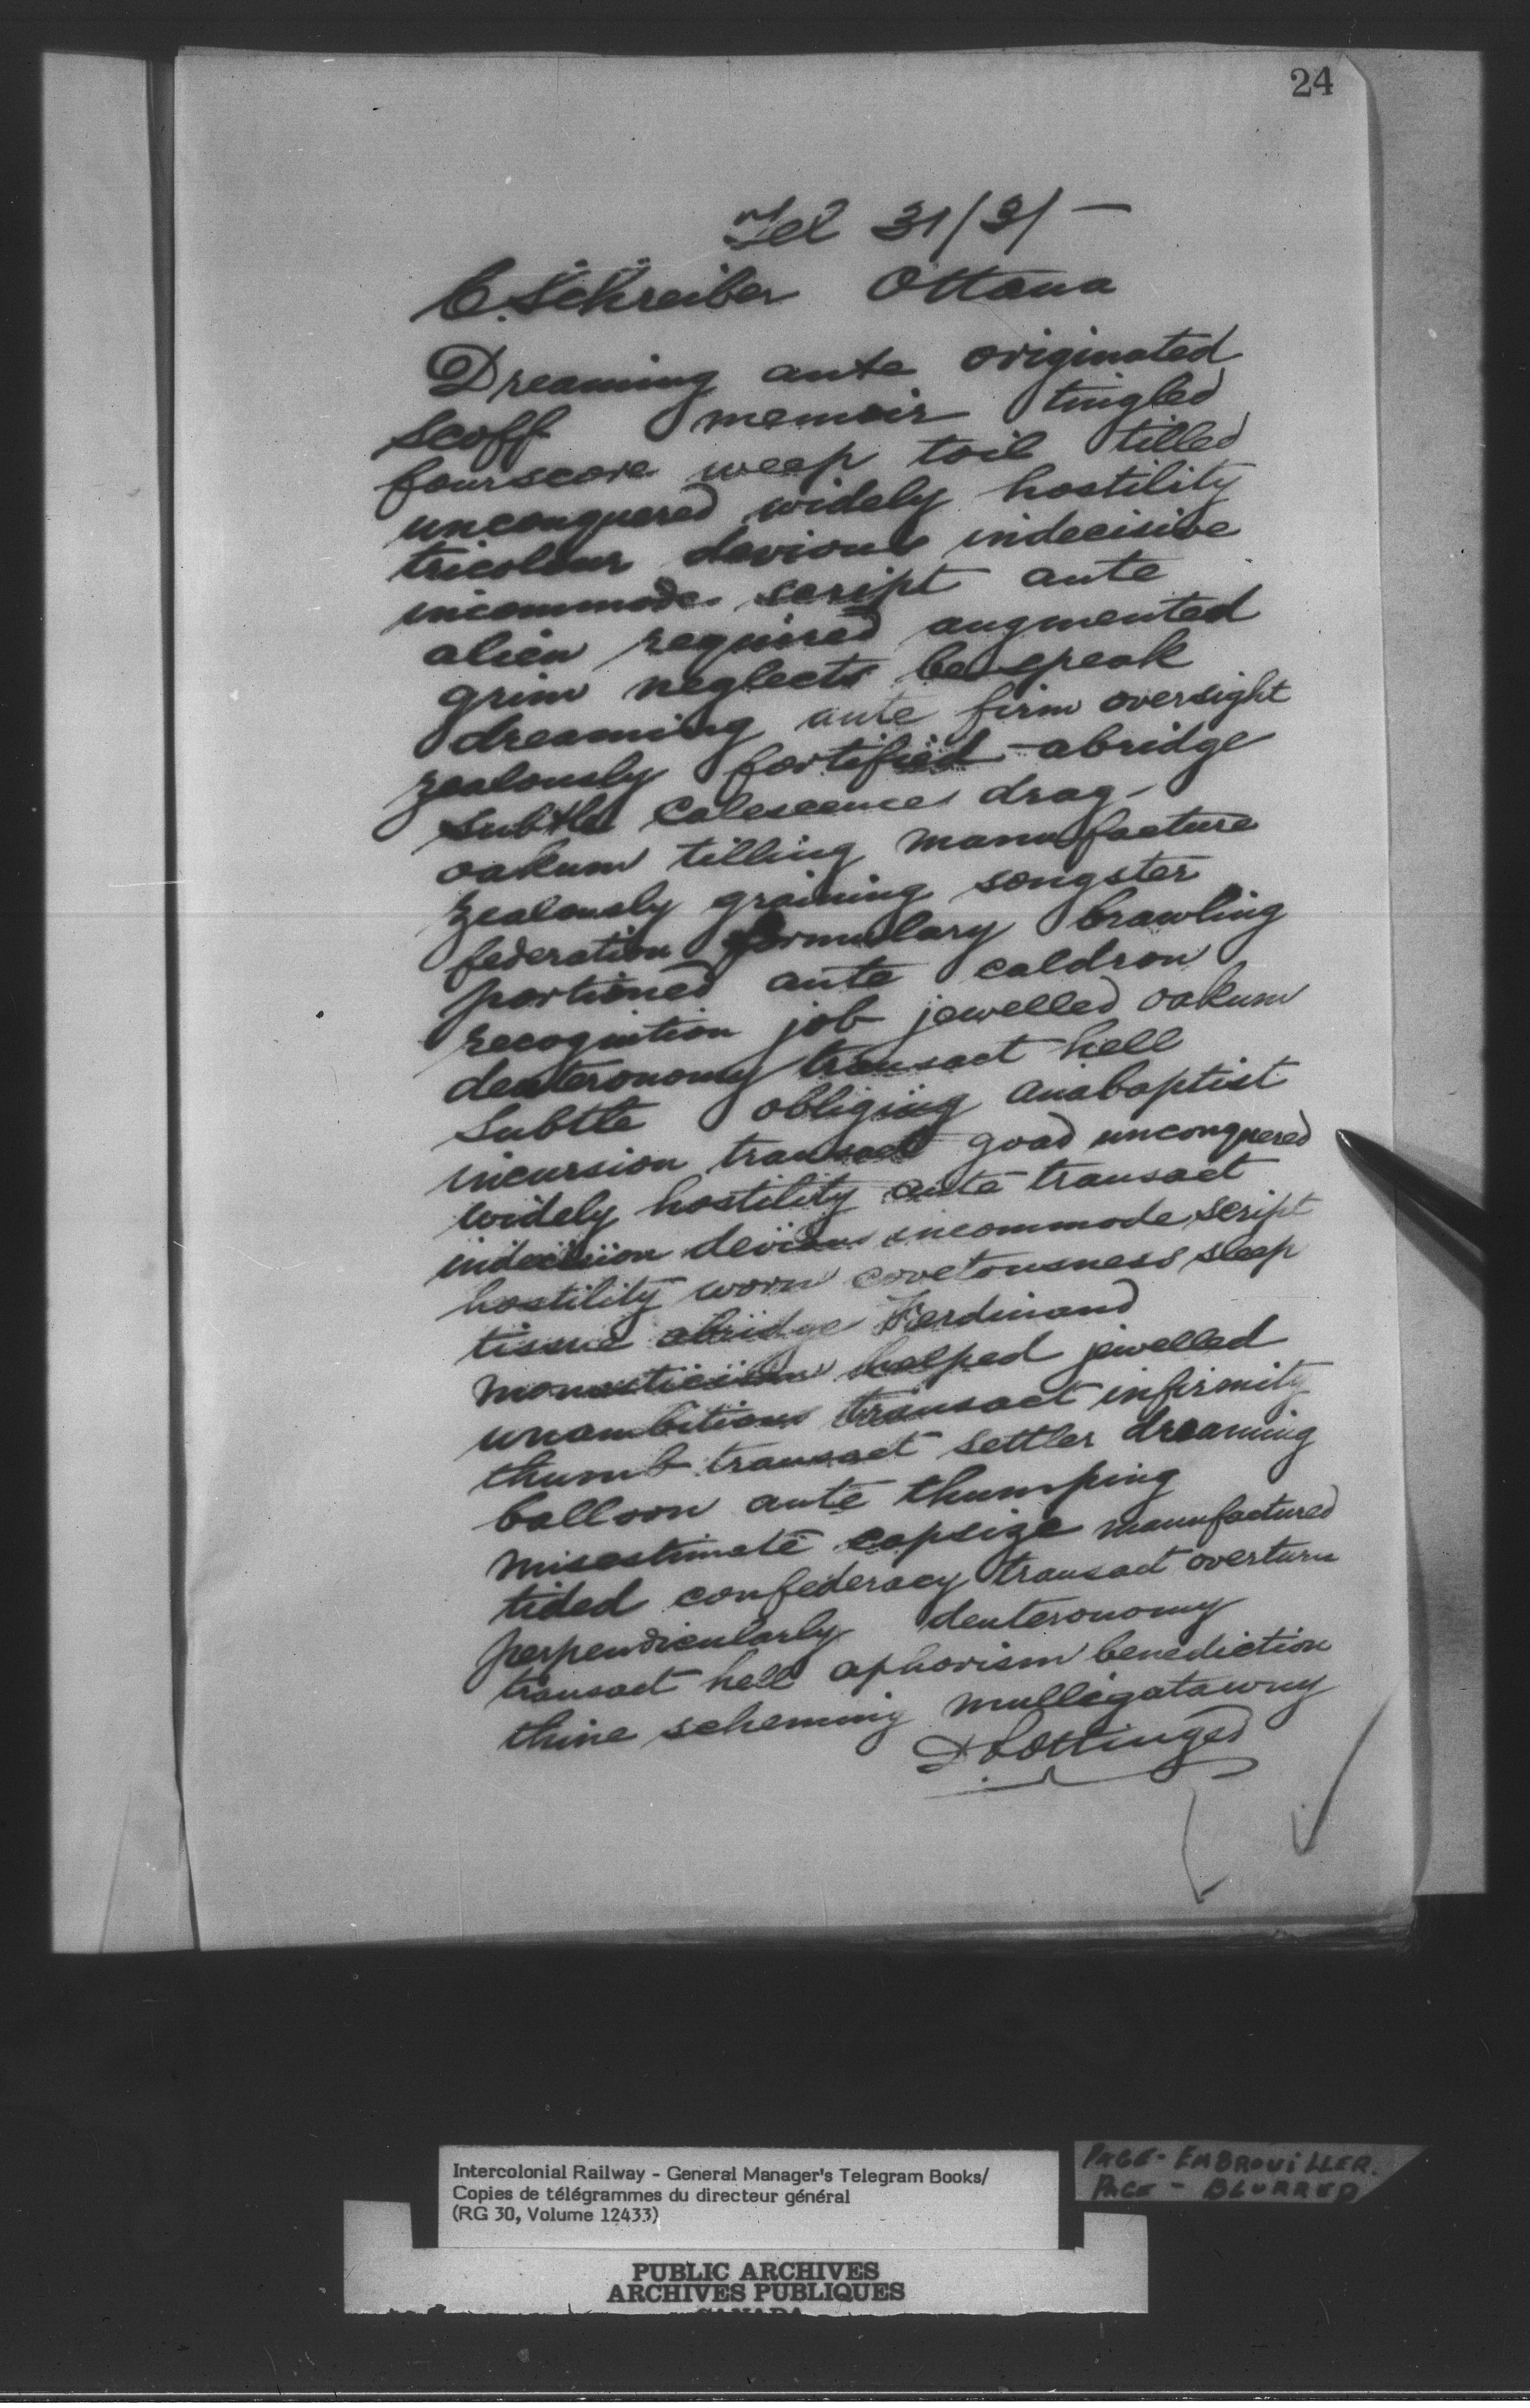 24
Tel 31/3/ —
C. Schreiber Ottawa
Dreaming ante originated
scoff memoir tingled
fourscore weep toil tilled
unconquered widely hostility
tricolour devious indecisive
incommode script ante
alien required augmented
grim neglects bespeak
dreaming ante firm oversight
zealously fortified abridge
subtle calescence drag -
oakum tilling manufacture
zealously graining songster
federation formulary brawling
portioned ante caldron
recognition job jewelled oakum
deuteronomy transact hell
subtle obliging anabaptist
incursion transact goad unconquered
widely hostility ante transact
indecision devious incommode script
hostility worn covetousness sleep
tissue abridge Ferdinand
helped jewelled
unambitious transact infirmity
thumb transact settler dreaming
balloon ante thumping
misestimate capsize manufactured
tided confederacy transact overturn
perpendicularly deuteronomy
transact hell aphorism benediction
thine scheming mulligatawny
D Pottinger
Intercolonial Railway - General Manager's Telegram Books/
Copies de télégrammes du directeur général
(RG 30, Volume 12433)
PAGE - EMBROUILLER.
PAGE - BLURRED
PUBLIC ARCHIVES
ARCHIVES PUBLIQUES
CANADA